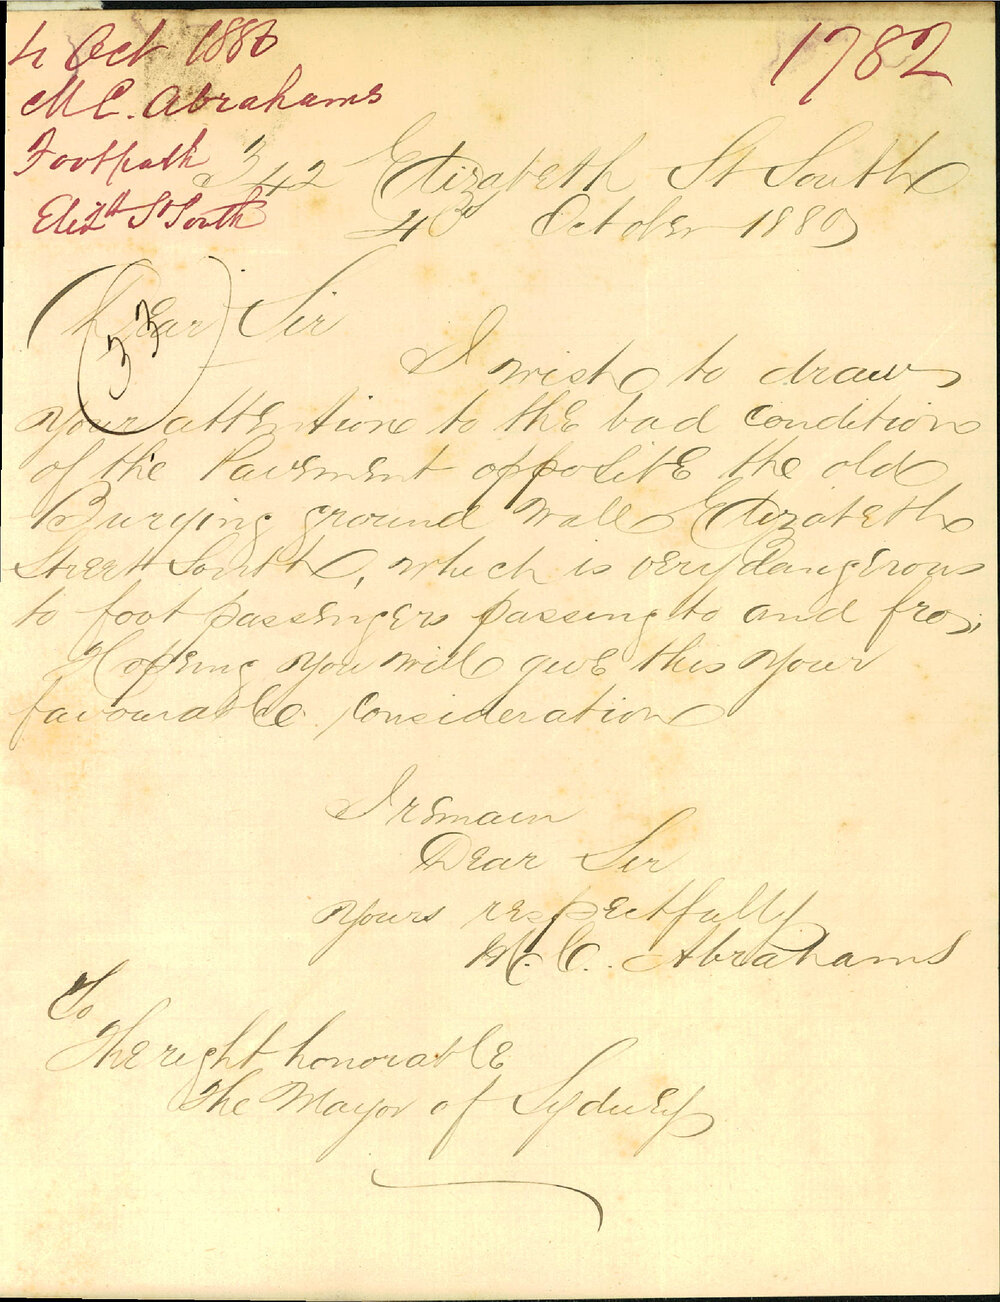 4 Oct 1880
M C. Abrahams
Footpath
Eliz.th St South
1782
342 Elizabeth St South
October 1880
(33)
Dear Sir
I wish to draw
your attention to the bad condition
of the Pavement opposite the old
Burying ground wall Elizabeth
Street South, which is very dangerous
to foot passengers passing to and fro,
Hoping you will give this your
favourable consideration
I remain
Dear Sir
yours respectfully
M. C. Abrahams
To
The right honorable
The Mayor of Sydney